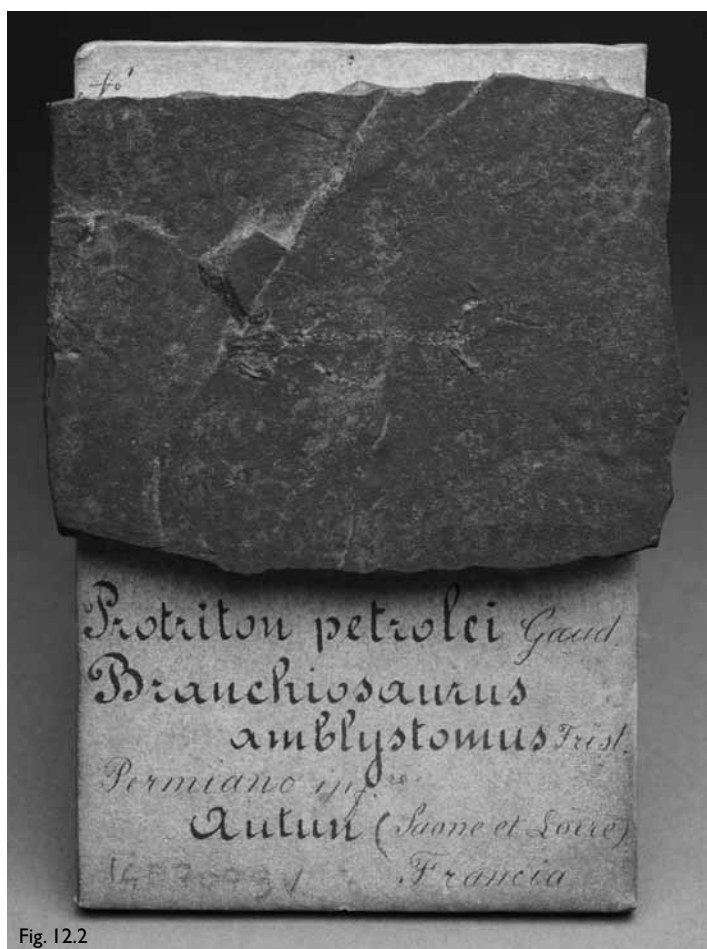 Protriton petrolei Gaud.
Branchiosaurus
amblystomus
Permiano inf.re
Autun (Saone et Loire)
Francia
Fig. 12.2